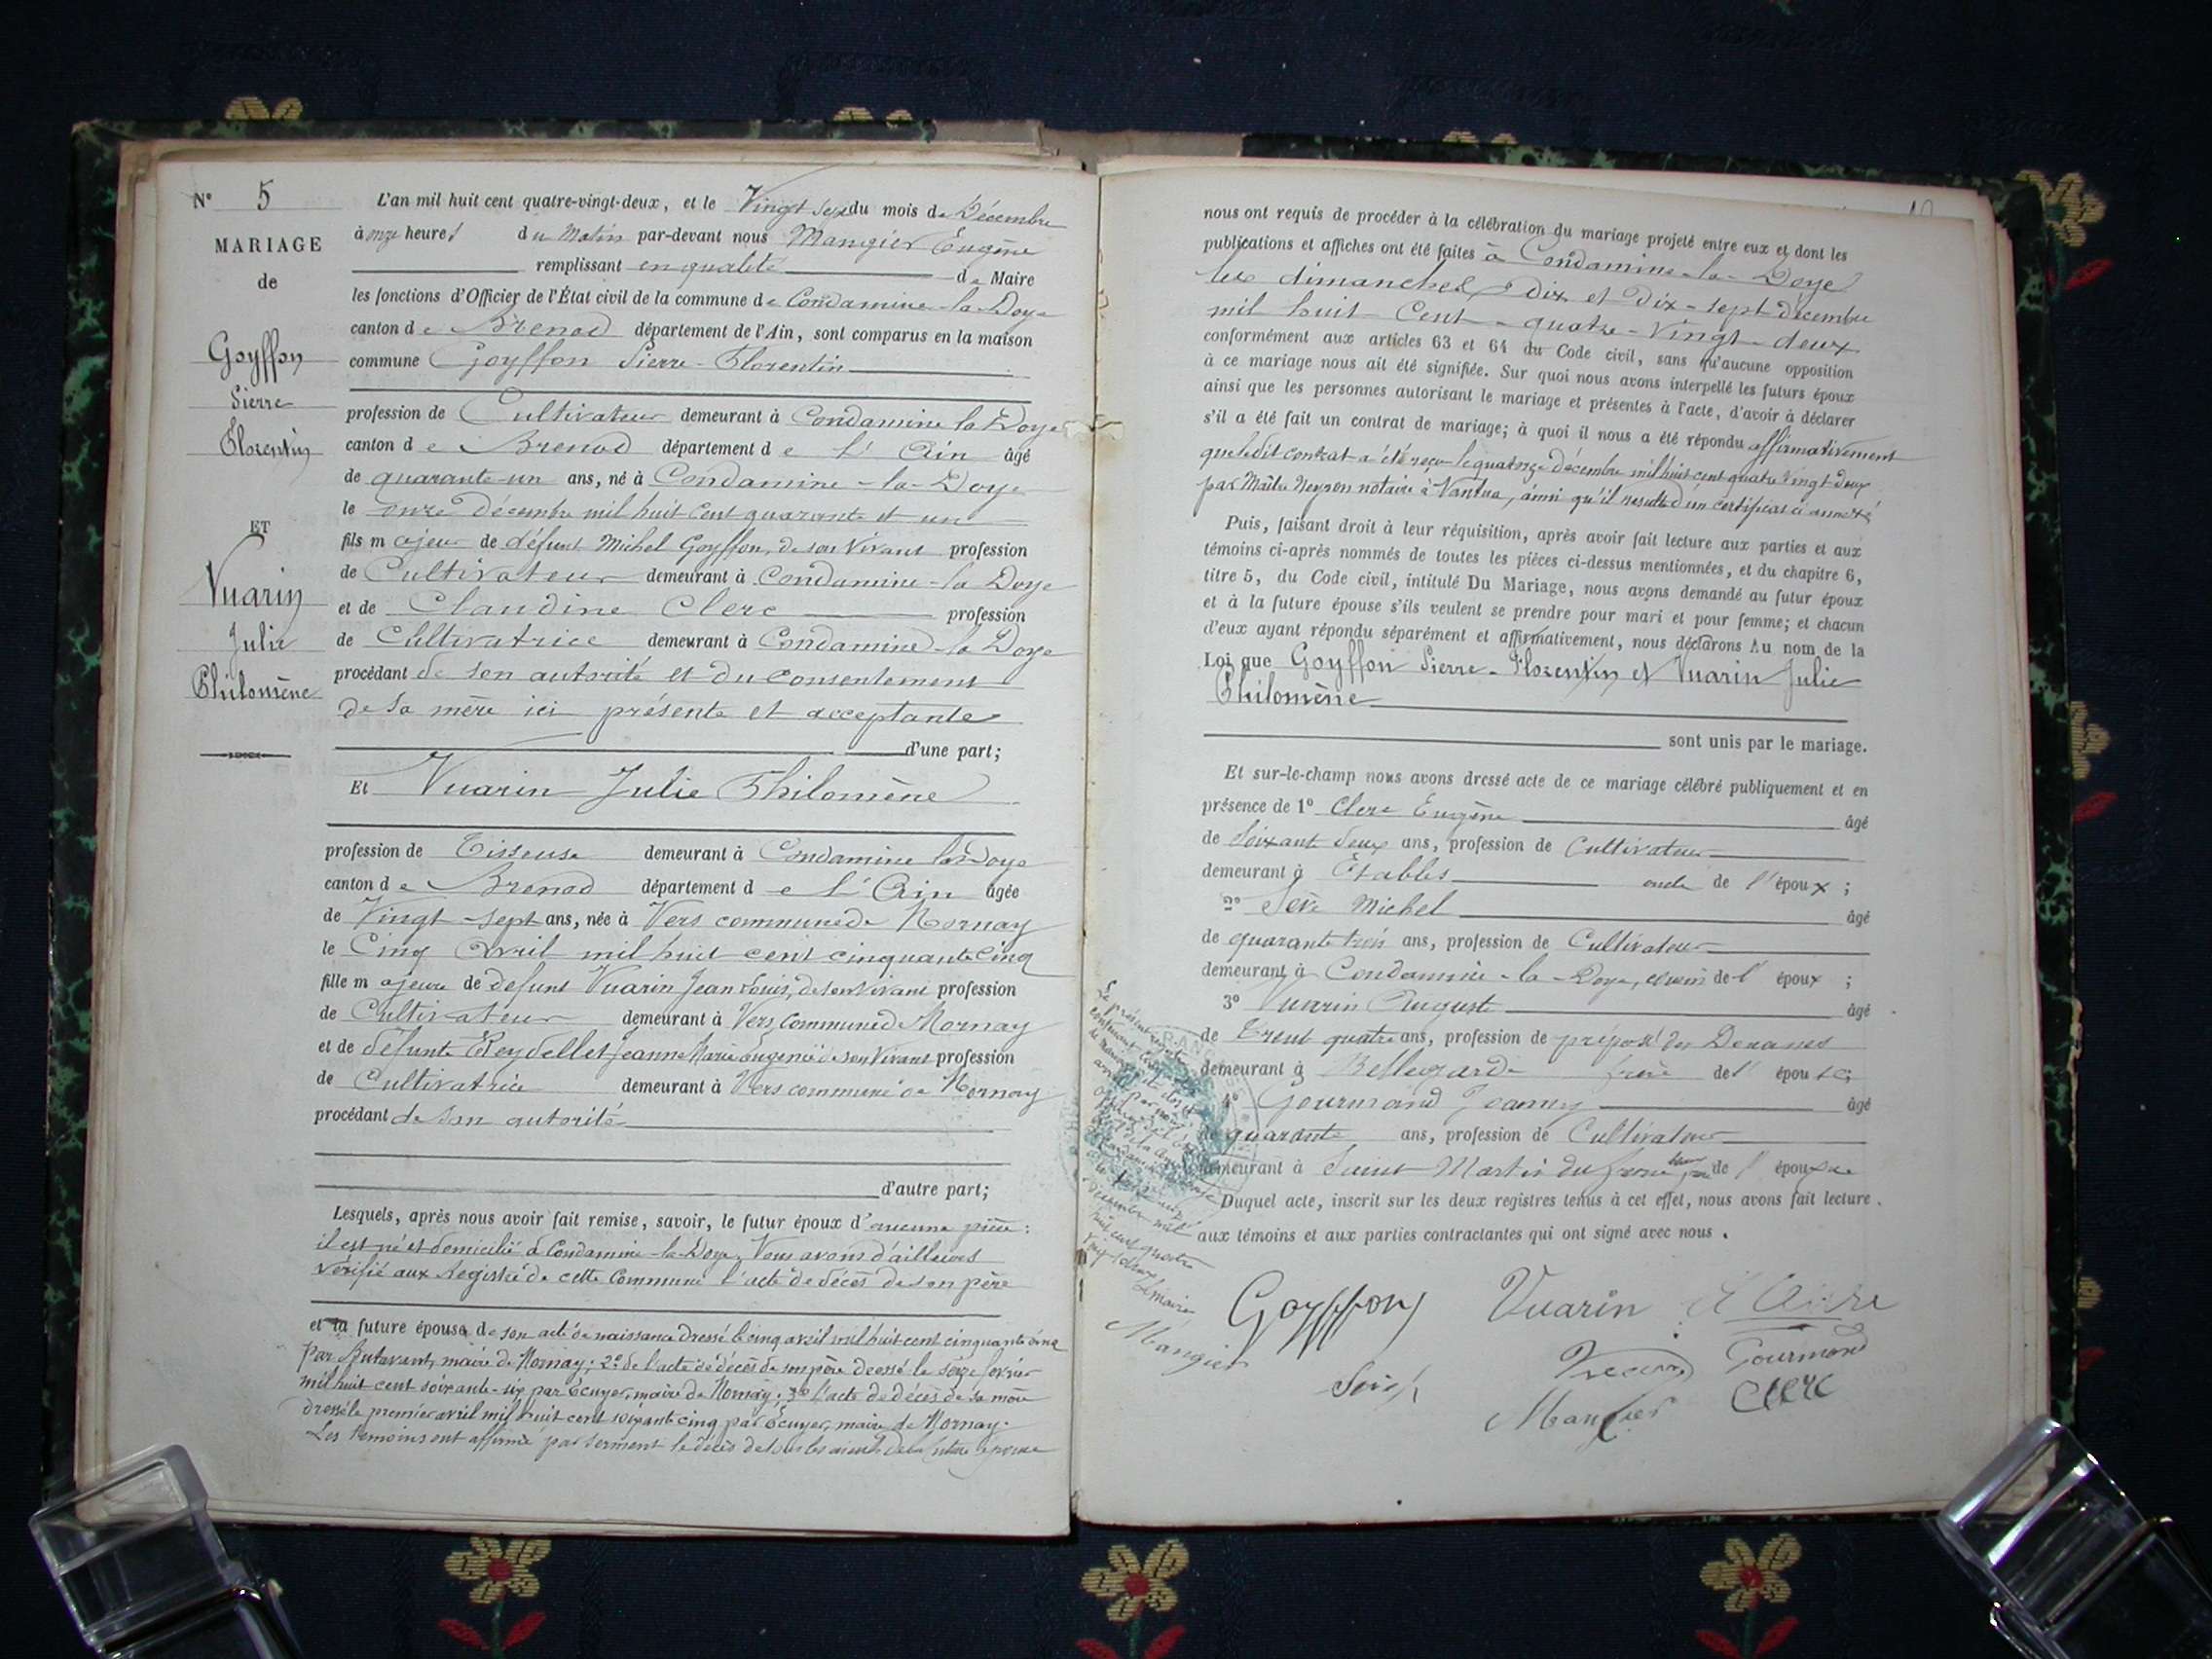 N° 5
MARIAGE
de
Goyffon
Pierre
Florentin
ET
Vuarin
Julie
Philomène
L'an mil huit cent quatre-vingt-deux, et le Vingt du mois de Décembre
à onze heures du Matin par-devant nous Mangier Eugène
remplissant en qualité de Maire
les fonctions d'Officier de l'État civil de la commune de Condamine-la-Doye
canton de Brenod département de l'Ain, sont comparus en la maison
commune Goyffon Pierre-Florentin
profession de Cultivateur demeurant à Condamine la Doye
canton de Brenod département de l'Ain âgé
de quarante-un ans, né à Condamine-la-Doye
le onze décembre mil huit cent quarante et un
fils majeur de défunt Michel Goyffon, de son vivant profession
de Cultivateur demeurant à Condamine-la Doye
et de Claudine Clerc profession
de Cultivatrice demeurant à Condamine-la Doye
procédant de son autorité et du consentement
de sa mère ici présente et acceptante
d'une part;
Et Vuarin Julie Philomène
profession de Tisseuse demeurant à Condamine la Doye
canton de Brenod département de l'Ain âgée
de Vingt-sept ans, née à Vers commune de Nornay
le Cinq Avril mil huit cent cinquante cinq
fille majeure de défunt Vuarin Jean Louis, de son vivant profession
de Cultivateur demeurant à Vers commune de Mornay
et de défunte Reydellet Jeanne Marie Eugenie de son vivant profession
de Cultivatrice demeurant à Vers commune de Nornay
procédant de son autorité
d'autre part;
Lesquels, après nous avoir fait remise, savoir, le futur époux d'aucune pièce:
il est né et domicilié à Condamine-la-Doye, Nous avons d'ailleurs
vérifié aux registre de cette commune l'acte de décès de son père
et la future épouse de son acte de naissance dressé le cinq avril mil huit cent cinquante cinq
par Butavant, maire de Nornay; 2° de l'acte de décès de son père dressé le seize février
mil huit cent soixante-six par Ecuyer, maire de Nornay; 3° l'acte de décès de sa mère
dressé le premier avril mil huit cent soixante cinq par Ecuyer, maire de Nornay.
Les témoins ont affirmé par serment le décès de tous les aïeuls de la future épouse
nous ont requis de procéder à la célébration du mariage projeté entre eux et dont les
publications et affiches ont été faites à Condamine-la-Doye
les dimanches dix et dix-sept décembre
mil huit Cent-quatre-Vingt-deux
conformément aux articles 63 et 64 du Code civil, sans qu'aucune opposition
à ce mariage nous ait été signifiée. Sur quoi nous avons interpellé les futurs époux
ainsi que les personnes autorisant le mariage et présentes à l'acte, d'avoir à déclarer
s'il a été fait un contrat de mariage; à quoi il nous a été répondu affirmativement
que ledit contrat a été reçu le quatorze décembre mil huit cent quatre vingt deux
par Maître Neyron notaire à Nantua, ainsi qu'il résulte d'un certificat ci annexé
Puis, faisant droit à leur réquisition, après avoir fait lecture aux parties et aux
témoins ci-après nommés de toutes les pièces ci-dessus mentionnées, et du chapitre 6,
titre 5, du Code civil, intitulé Du Mariage, nous avons demandé au futur époux
et à la future épouse s'ils veulent se prendre pour mari et pour femme; et chacun
d'eux ayant répondu séparément et affirmativement, nous déclarons Au nom de la
Loi que Goyffon Pierre-Florentin et Vuarin Julie
Philomène
sont unis par le mariage.
Et sur-le-champ nous avons dressé acte de ce mariage célébré publiquement et en
présence de 1° Clerc Eugène âgé
de Soixant deux ans, profession de Cultivateur
demeurant à Etables oncle de l'époux;
2° Sève Michel âgé
de quarante trois ans, profession de Cultivateur
demeurant à Condamine-la-Doye, cousin de l'époux;
3° Vuarin Auguste âgé
de trent quatre ans, profession de préposé des Douanes
demeurant à Bellegarde frère de l'épouse;
4° Gourmand Joanny âgé
de quarante ans, profession de Cultivateur
demeurant à Saint Martin du frene de l'épouse
Duquel acte, inscrit sur les deux registres tenus à cet effet, nous avons fait lecture
aux témoins et aux parties contractantes qui ont signé avec nous.
Le présent registre
contenant
décembre mil
huit cent quatre
vingt deux
Le maire
Mangier
Goyffon Vuarin
Gourmand
Sève
Mangier Clerc